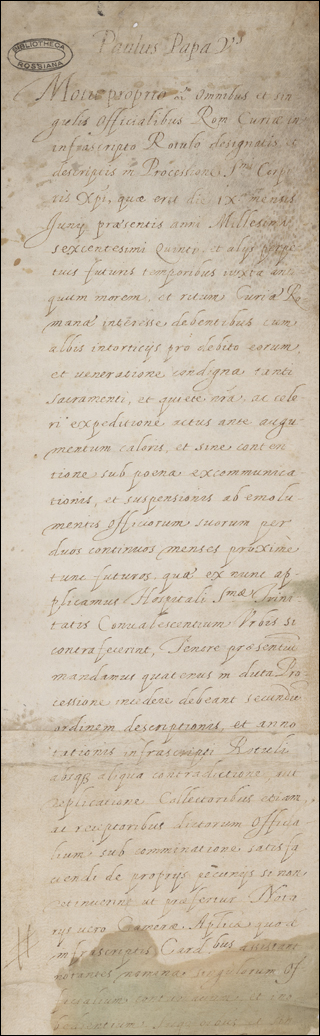 BIBLIOTHECA
ROSSIANA
Paulus Papa Vs
Motu proprio etc. Omnibus et sin
gulis Officialibus Rom Curiæ in
infrascripto Rotulo designatis, et
descriptis in Processione Smi Corp
ris Xpi, quæ erit die IX mensis
Junij præsentis anni Millesimi
sexcentesimi Quinti, et alijs perpe
tuis futuris temporibus iuxta anti
quum morem, et ritum Curiæ Ro
manæ interesse debentibus cum
albis intorticijs pro debito eorum,
et veneratione condigna tanti
sacramenti, et quiete nra, ac cele
ri expeditione actus ante augu
mentum caloris, et sine conten
tione sub poena excommunica
tionis, et suspensionis ab emolu
mentis Officiorum suorum per
duos continuos menses proxime
tunc futuros, quæ ex nunc ap
plicamus Hospitali Smæ Trini
tatis Convalescentium Urbis si
contrafecerint, Tenore præsentiu
mandamus quatenus in dicta Pro
cessione incedere debeant secundu
ordinem descriptionis, et anno
tationis infrascripti Rotuli
absq aliqua contradictione, aut
replicatione Collectoribus etiam,
ac receptoribus dictorum Officia
lium sub comminatione satisfa
ciendi de proprijs pecunijs si non
retinuerint ut præfertur. Nota
rijs vero Cameræ Aplicæ quod
infrascriptis Card.bus assistant
notantes nomina singulorum Of
ficialium